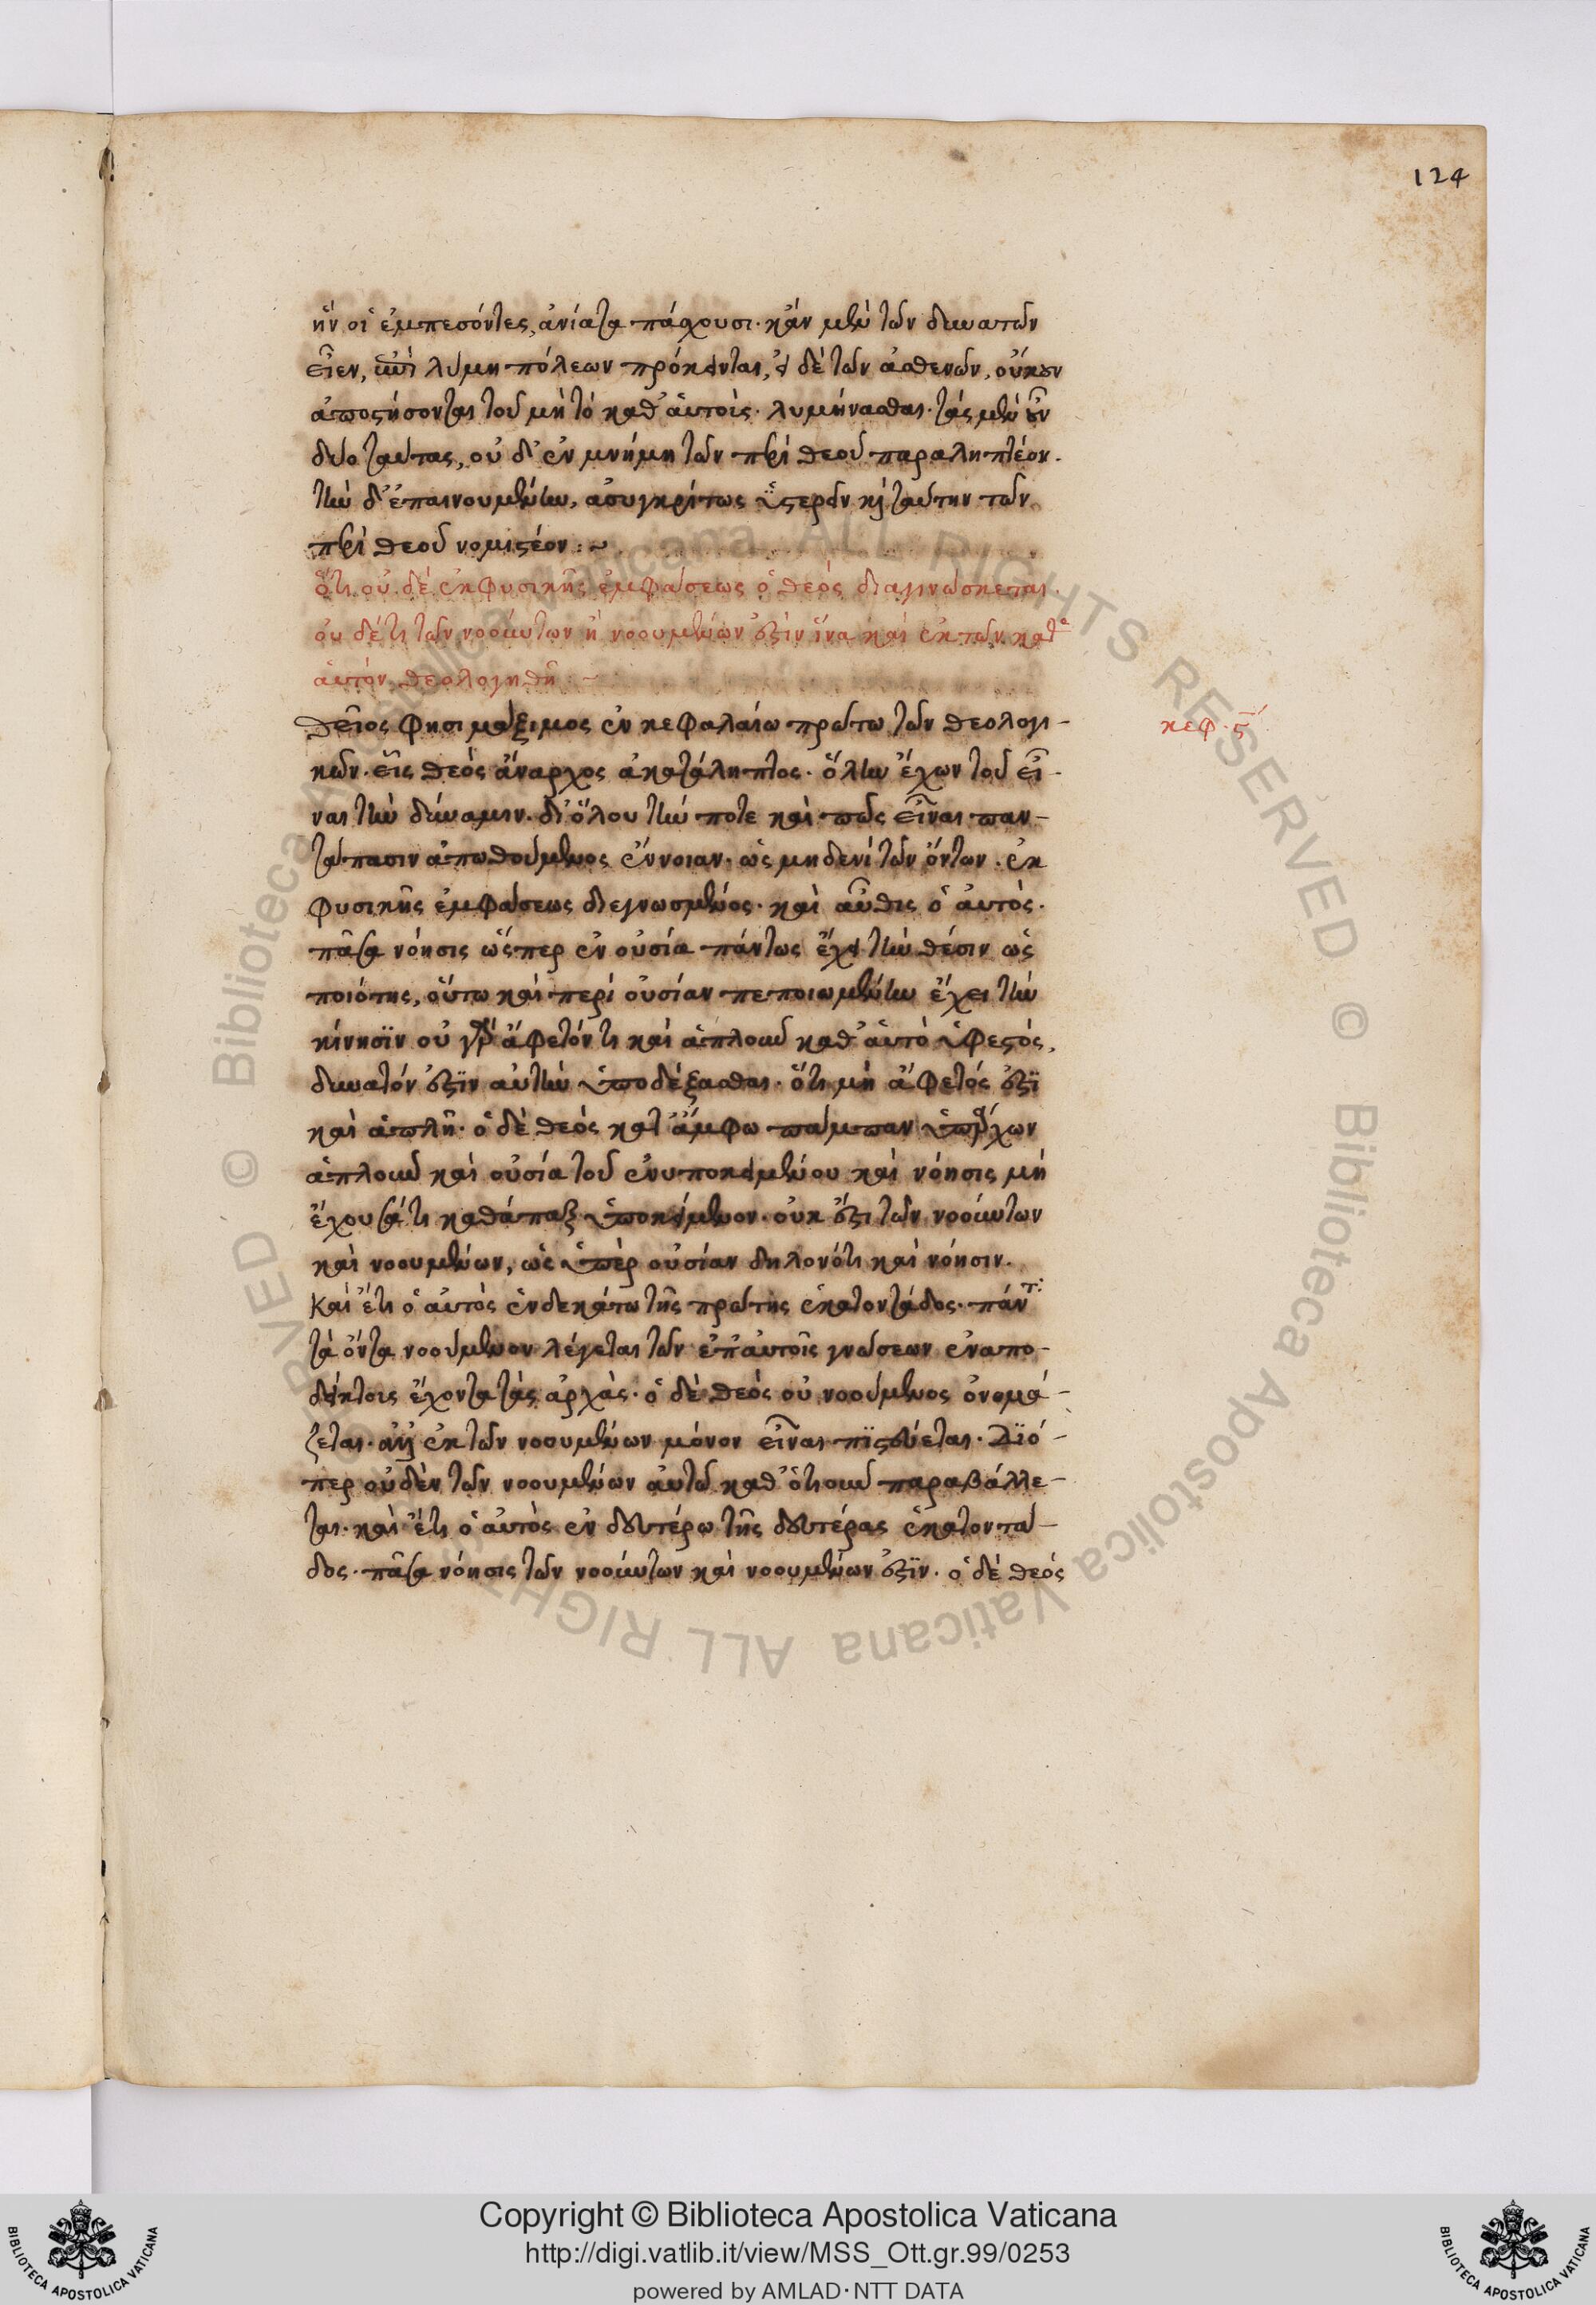 124
ἣν οἱ ἐμπεσόντες, ἀνίατα πάσχουσι· κἂν μὲν τῶν δυνατῶν
εἶεν, ἐπὶ λύμῃ πόλεων πρόκεινται, εἰ δὲ τῶν ἀσθενῶν, οὔκουν
ἀποστήσονται τοῦ μὴ τὸ καθ' αὑτοὺς λυμήνασθαι· τὰς μὲν οὖν
δύο ταύτας, οὐδ' ἐν μνήμη τῶν περὶ θεοῦ παραληπτέον.
τὴν δ' ἐπαινουμένην, ἀσυγκρίτως ὑστερεῖν καὶ ταύτην τῶν
περὶ θεοῦ νομιστέον :~
ὅτι οὐδὲ ἐκ φυσικῆς ἐμφάσεως ὁ θεὸς διαγινώσκεται.
οὐδέ τι τῶν νοούντων ἢ νοουμένων ἐστὶν ἵνα καὶ ἐκ τῶν κατ'
αὐτὸν θεολογηθῆ :~
κεφ. ϛ΄
θεῖος φησὶ μάξιμος ἐν κεφαλαίω πρώτω τῶν θεολογι-
κῶν· εἷς θεὸς ἄναρχος ἀκατάληπτος· ὅλην ἔχων τοῦ εἶ-
ναι τὴν δύναμιν· δι' ὅλου τήν ποτε καὶ πῶς εἶναι παν-
τάπασιν ἀπωθούμενος ἔννοιαν· ὡς μηδενὶ τῶν ὄντων· ἐκ
φυσικῆς ἐμφάσεως διεγνωσμένος· καὶ αὖθις ὁ αὐτὸς·
πᾶσα νόησις ὥσπερ ἐν οὐσία πάντως ἔχει τὴν θέσιν ὡς
ποιότης, οὕτω καὶ περὶ οὐσίαν πεποιωμένην ἔχει τὴν
κίνησϊν οὐ γὰρ ἄφετόν τι καὶ ἁπλοῦν καθ' αὑτὸ ὑφεστός,
δυνατόν ἐστϊν αὐτὴν ὑποδέξασθαι· ὅτι μὴ ἄφετός ἐστϊ
καὶ ἁπλῆ· ὁ δὲ θεὸς κατ' ἄμφω πάμπαν ὑπάρχων
ἁπλοῦν καὶ οὐσία τοῦ ἐνυποκειμένου καὶ νόησις μὴ
ἔχουσά τι καθάπαξ ὑποκείμενον· οὐκ ἔστι τῶν νοούντων
καὶ νοουμένων, ὡς ὑπὲρ οὐσίαν δηλονότι καὶ νόησιν.
Καὶ ἔτι ὁ αὐτὸς ἐν δεκάτω τῆς πρώτης ἑκατοντάδος· πάντ
τὰ ὄντα νοούμενον λέγεται τῶν ἐπ' αὐτοῖς γνώσεων ἐναπο-
δείκτοις ἔχοντα τὰς ἀρχὰς· ὁ δὲ θεὸς οὐ νοούμενος ὀνομά-
ζεται· ἀλλ' ἐκ τῶν νοουμένων μόνον εἶναι πϊστεύεται· Δϊό-
περ οὐδὲν τῶν νοουμένων αὐτῶ καθ' ὁτιοῦν παραβάλλε-
ται· καὶ ἔτι ὁ αὐτὸς ἐν δευτέρω τῆς δευτέρας ἑκατοντά-
δος· πᾶσα νόησις τῶν νοούντων καὶ νοουμένων ἐστϊν· ὁ δὲ θεὸς
Copyright © Biblioteca Apostolica Vaticana
http://digi.vatlib.it/view/MSS_Ott.gr.99/0253
powered by AMLAD·NTT DATA